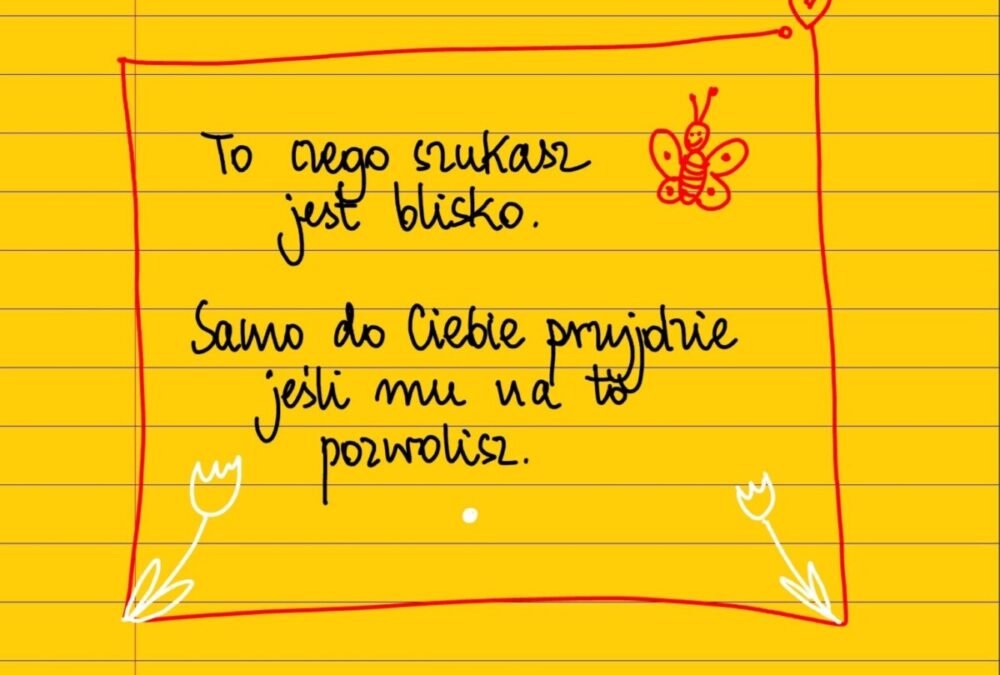 To czego szukasz
jest blisko.
Samo do Ciebie przyjdzie
jeśli mu na to
pozwolisz.